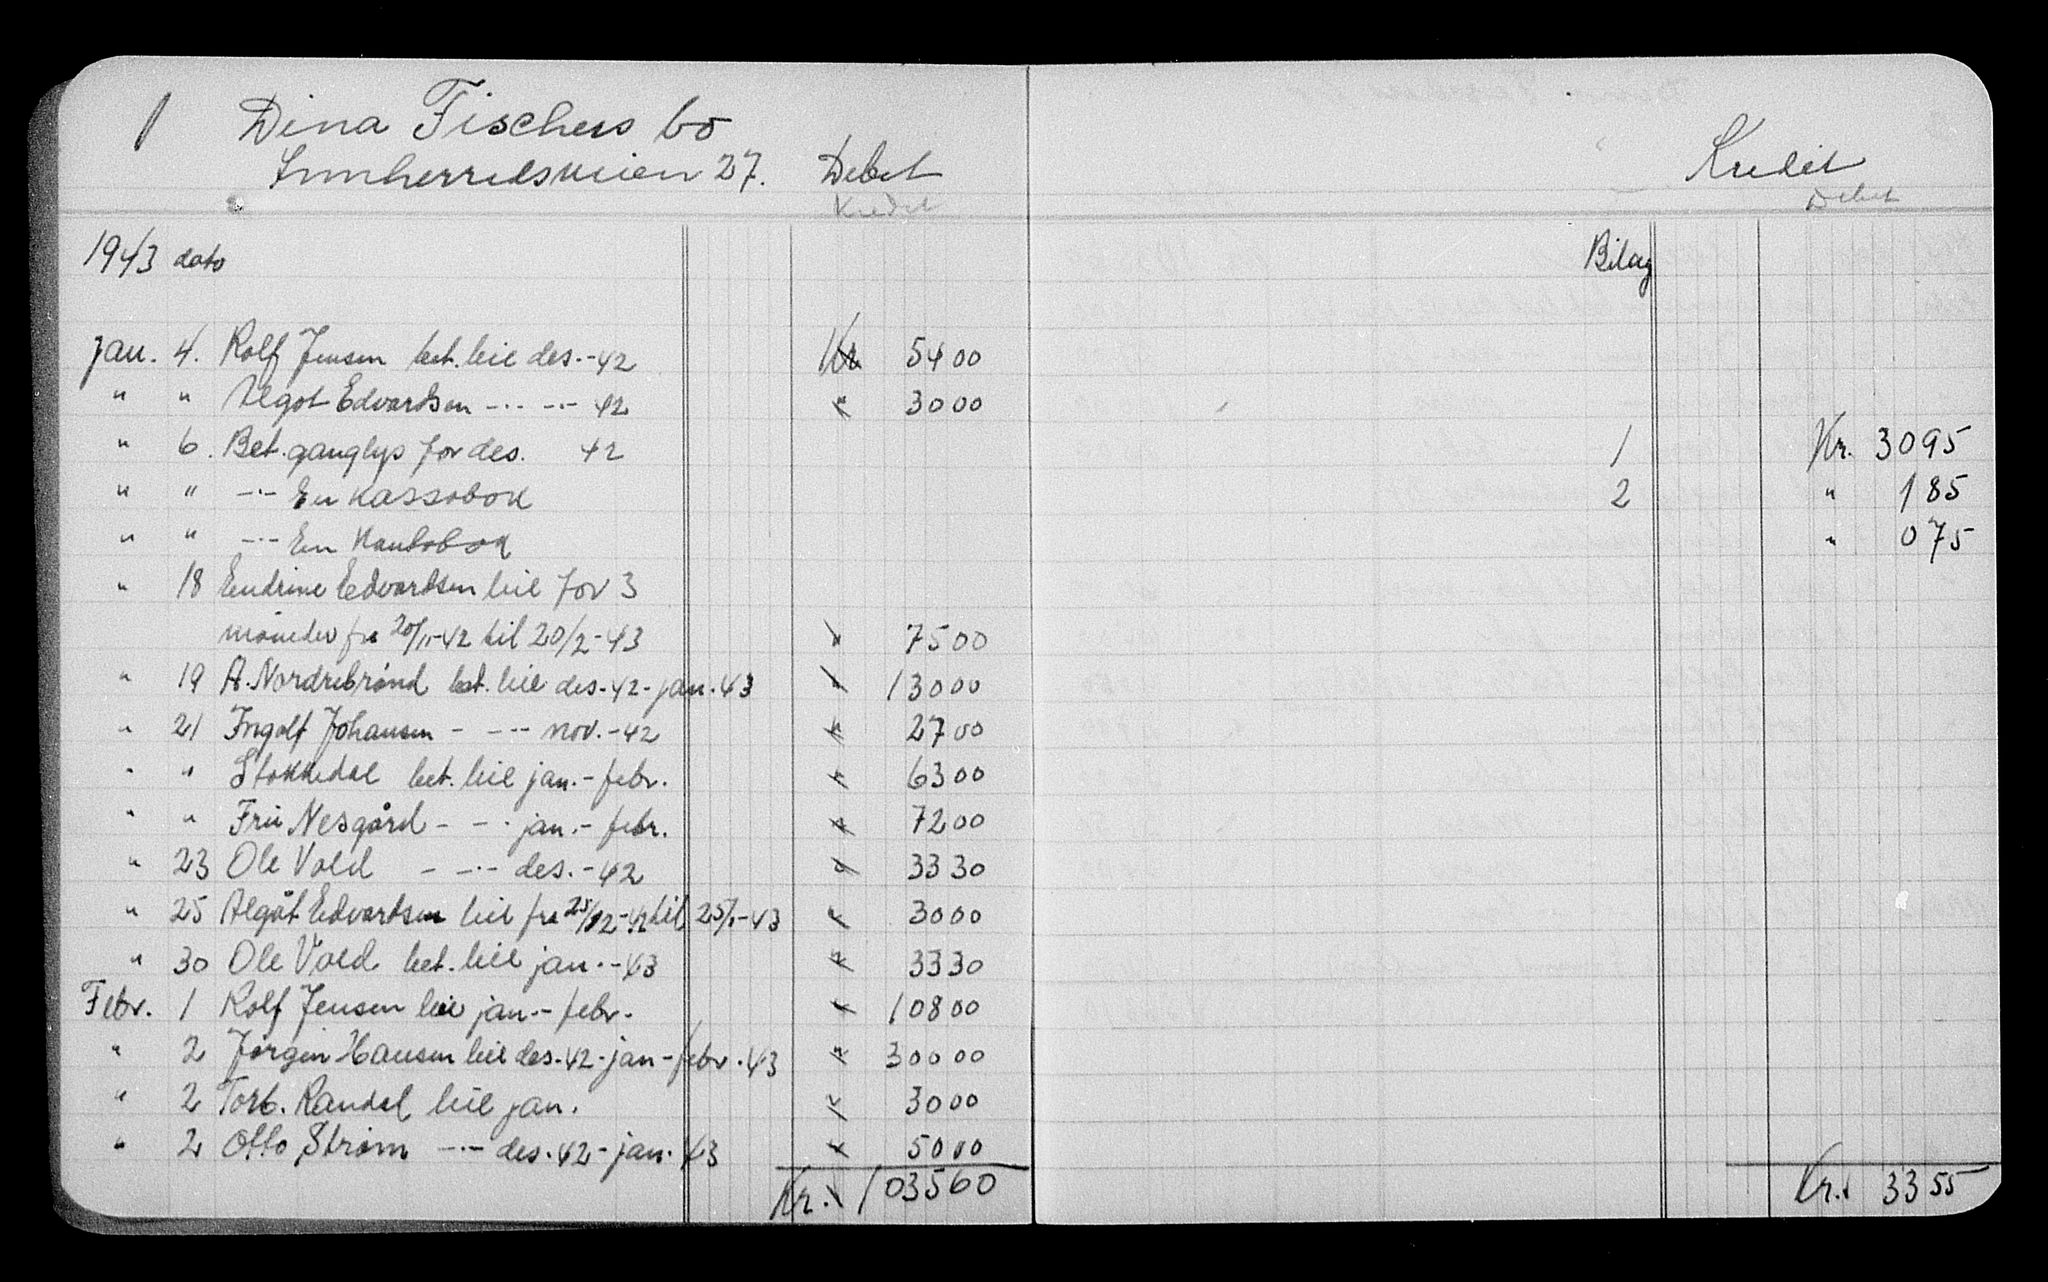 1 Dina Fischers bo
Innherredsveien 27. Debet Kredit
Kredit Debet
1943 dato Bilag
Jan. 4. Rolf Jensen bet. leie des.-42 Kr 5400
" " Algot Edvardsen -··- -··- 42 " 3000
" 6. Bet. ganglys for des. 42 1 Kr. 3095
" " -··- En kassobok 2 " 185
" " -··- En Kontobok " 075
" 18 Endrine Edvardsen leie for 3
måneder fra 20/11-42 til 20/2-43 " 7500
" 19 A. Nordrebrønd bet. leie des.-42-jan.43 " 13000
" 21 Ingolf Johansen - -··- nov.-42 " 2700
" " Stokkedal bet. leie jan.-febr. " 6300
" " Fru Nesgård - -· jan.-febr. " 7200
" 23 Ole Vold - -··- des.-42 " 3330
" 25 Algot Edvardsen leie fra 25/12-42 til 25/1-43 " 3000
" 30 Ole Vold bet. leie jan.-43 " 3330
Febr. 1 Rolf Jensen leie jan.-febr. " 10800
" 2 Jørgen Hansen leie des.42-jan-febr.43 " 30000
" 2 Torb. Randal leie jan. " 3000
" 2 Otto Strøm -··- des.42-jan.43 " 5000
Kr. 103560 Kr. 3355